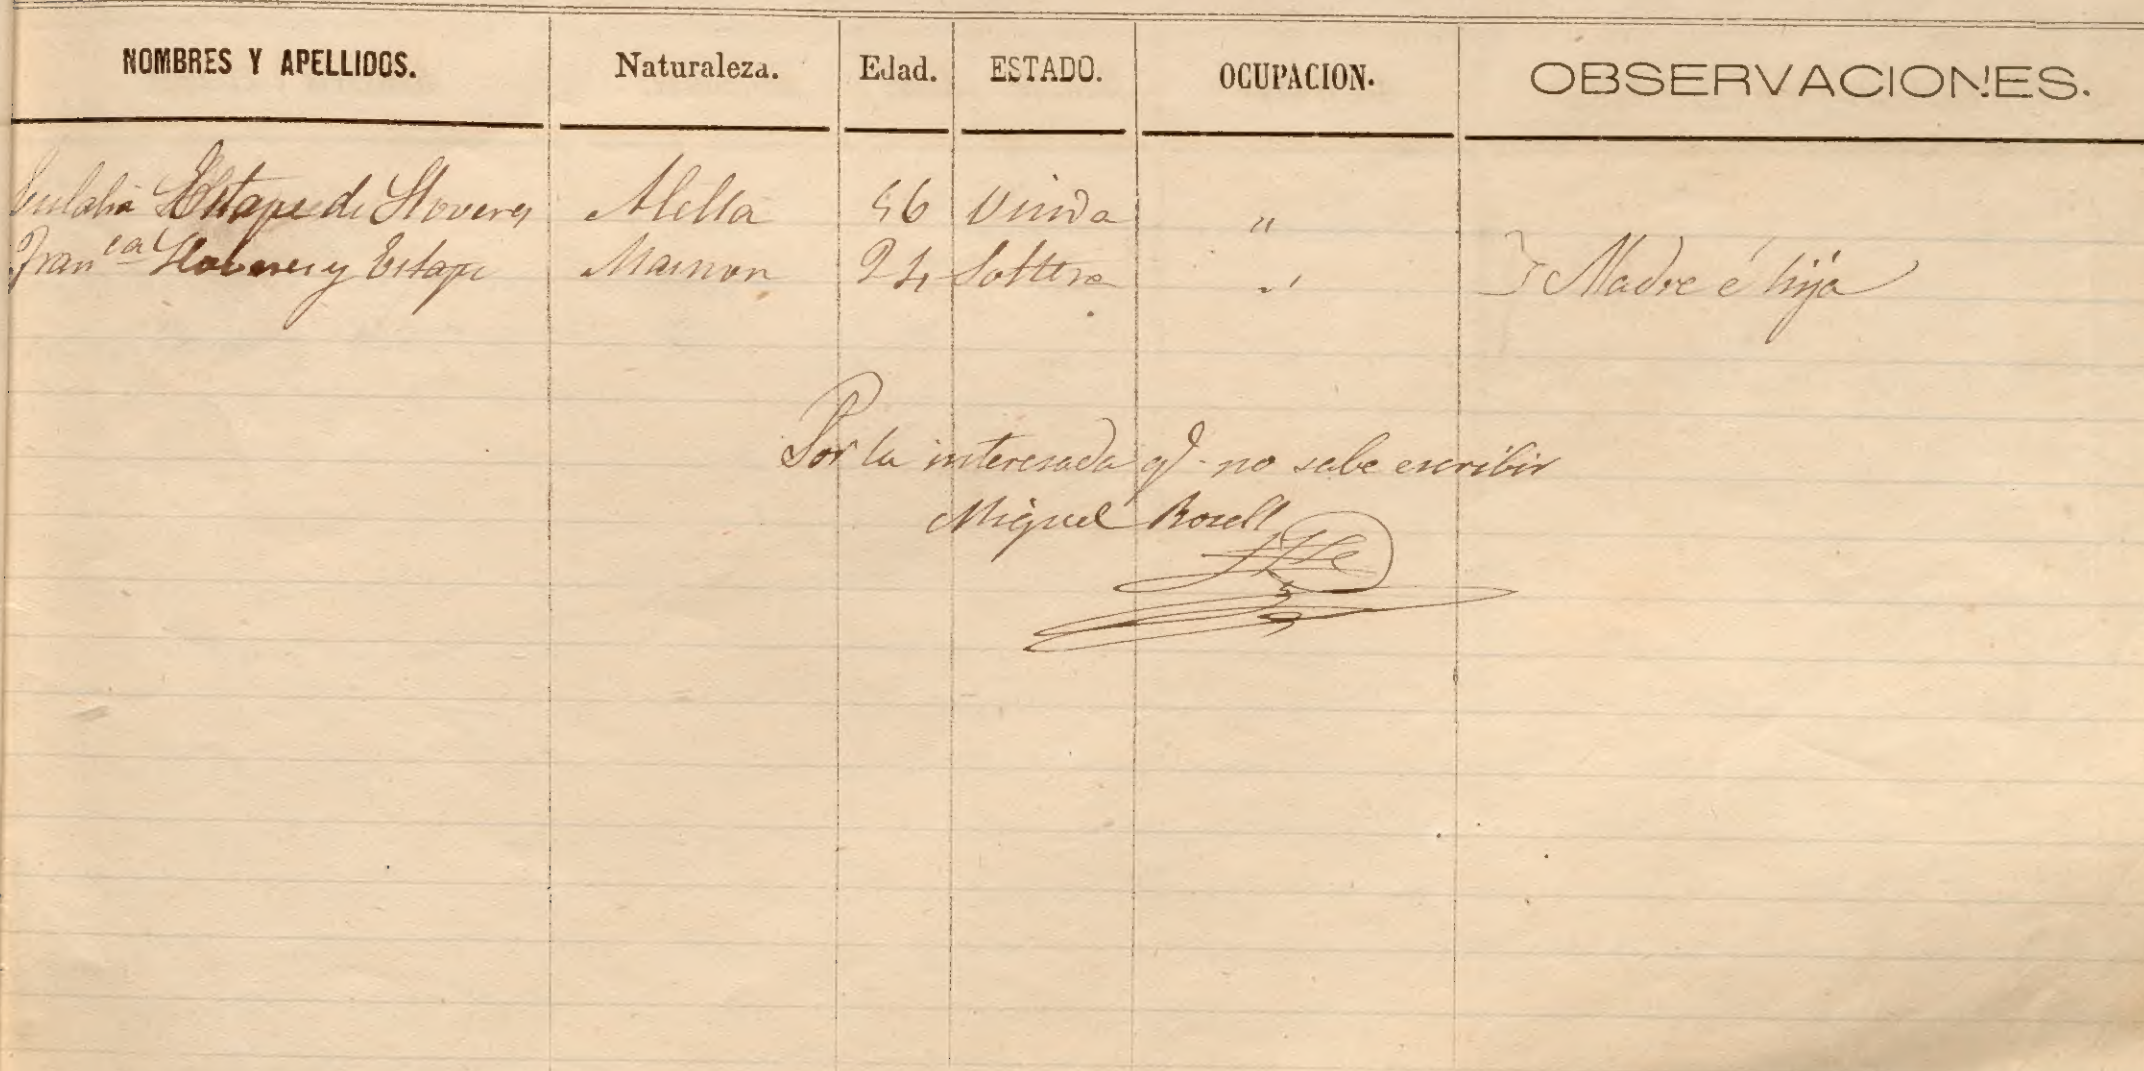 NOMBRES Y APELLIDOS. Naturaleza. Edad. ESTADO. OCUPACION. OBSERVACIONES.
Eulalia Estape de Lloveres Alella 56 Viuda "
Fran^ca Lloveres y Estape Masnou 24 Soltera " } Madre é hija
Por la interesada q.e no sabe escribir
Miguel Rosell